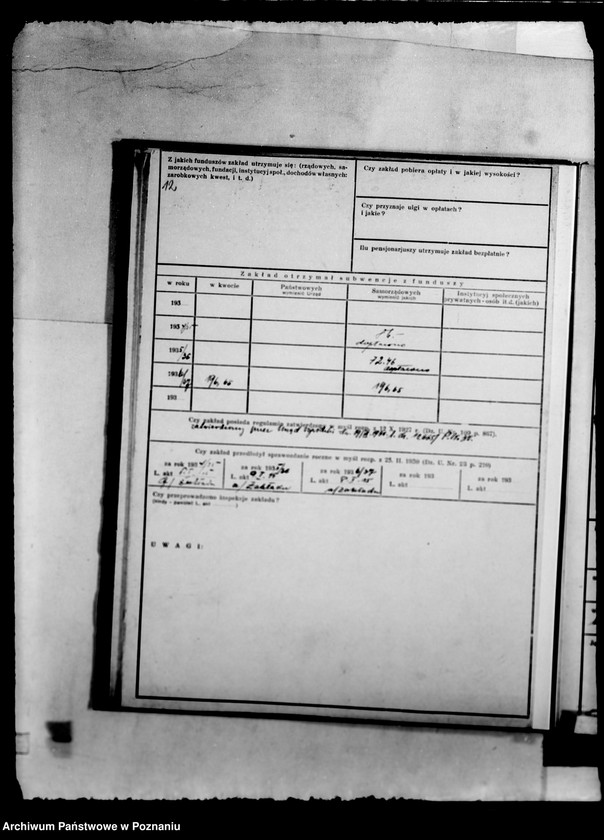 Z jakich funduszów zakład utrzymuje się: (rządowych, sa-
morządowych, fundacji, instytucyj społ., dochodów własnych:
zarobkowych kwest, i t. d.)
12,
Czy zakład pobiera opłaty i w jakiej wysokości?
Czy przyznaje ulgi w opłatach?
i jakie?
Ilu pensjonarjuszy utrzymuje zakład bezpłatnie?
Zakład otrzymał subwencje z funduszy
w roku
w kwocie
Państwowych
wymienić Urząd
Samorządowych
wymienić jakich
Instytucyj społecznych
prywatnych - osób it.d. (jakich)
193
193
76.-
1935/36
72.46
1936/37
196,05
196,05
193
Czy zakład posiada regulamin zatwierdzony w myśl rozp. z 12 X. 1927 r. (Dz. U. Nr. 103 p. 867).
Czy zakład przedłożył sprawozdanie roczne w myśl rozp. z 25. II. 1930 (Dz. U. Nr. 23 p. 239)
za rok 193
za rok 193
za rok 1936/37
za rok 193
za rok 193
L. akt
L. akt
L. akt
L. akt
L. akt
a/ Zakładu
a/Zakładu
Czy przeprowadzono inspekcje zakładu?
U W A G I :
Archiwum Państwowe w Poznaniu